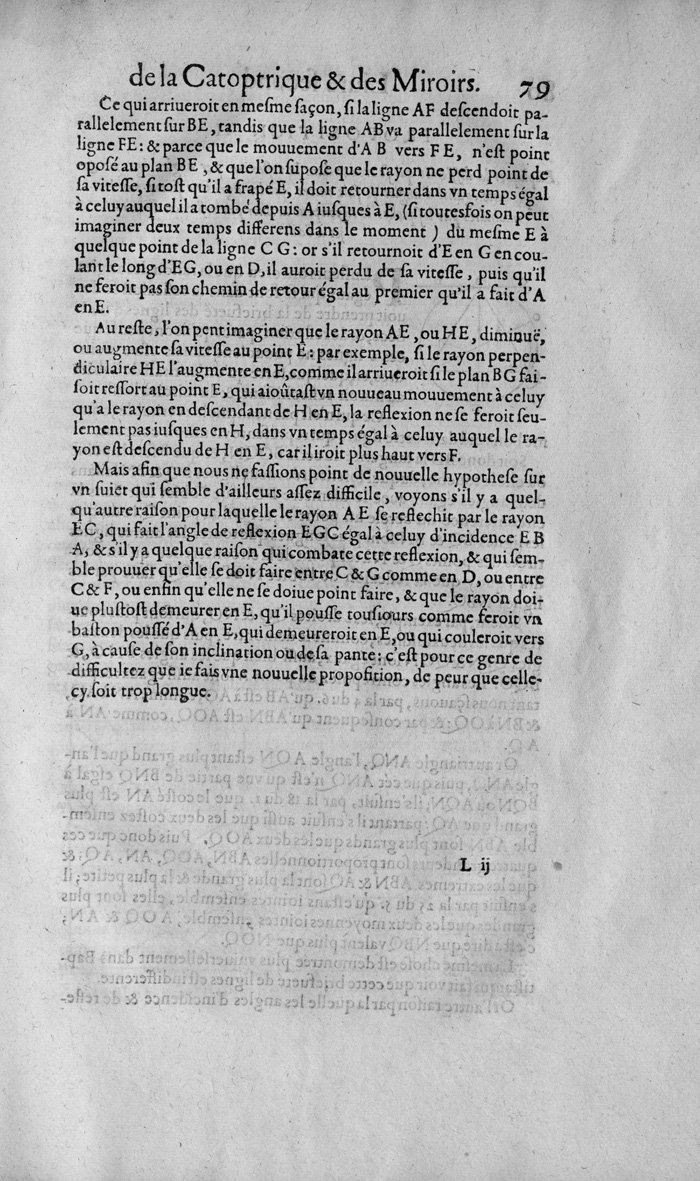 de la Catoptrique & des Miroirs. 79
Ce qui arriueroit en mesme façon, si la ligne AF descendoit pa-
rallelement sur BE, tandis que la ligne AB va parallelement sur la
ligne FE: & parce que le mouuement d'A B vers FE, n'est point
oposé au plan BE, & que l'on supose que le rayon ne perd point de
sa vitesse, si tost qu'il a frapé E, il doit retourner dans vn temps égal
à celuy auquel il a tombé depuis A iusques à E, (si toutesfois on peut
imaginer deux temps differens dans le moment ) du mesme E à
quelque point de la ligne C G: or s'il retournoit d'E en G en cou-
lant le long d'EG, ou en D, il auroit perdu de sa vitesse, puis qu'il
ne feroit pas son chemin de retour égal au premier qu'il a fait d'A
en E.
Au reste, l'on pent imaginer que le rayon AE, ou HE, diminuë,
ou augmente sa vitesse au point E: par exemple, si le rayon perpen-
diculaire HE l'augmente en E, comme il arriueroit si le plan BG fai-
soit ressort au point E, qui aioûtast vn nouueau mouuement à celuy
qu'a le rayon en descendant de H en E, la reflexion ne se feroit seu-
lement pas iusques en H, dans vn temps égal à celuy auquel le ra-
yon est descendu de H en E, car il iroit plus haut vers F.
Mais afin que nous ne fassions point de nouuelle hypothese sur
vn suiet qui semble d'ailleurs assez difficile, voyons s'il y a quel-
qu'autre raison pour laquelle le rayon AE se reflechit par le rayon
EC, qui fait l'angle de reflexion EGC égal à celuy d'incidence EB
A, & s'il y a quelque raison qui combate cette reflexion, & qui sem-
ble prouuer qu'elle se doit faire entre C & G comme en D, ou entre
C & F, ou enfin qu'elle ne se doiue point faire, & que le rayon doi-
ue plustost demeurer en E, qu'il pousse tousiours comme feroit vn
baston poussé d'A en E, qui demeureroit en E, ou qui couleroit vers
G, à cause de son inclination ou de sa pante: c'est pour ce genre de
difficultez que ie fais vne nouuelle proposition, de peur que celle-
cy soit trop longue.
L ij